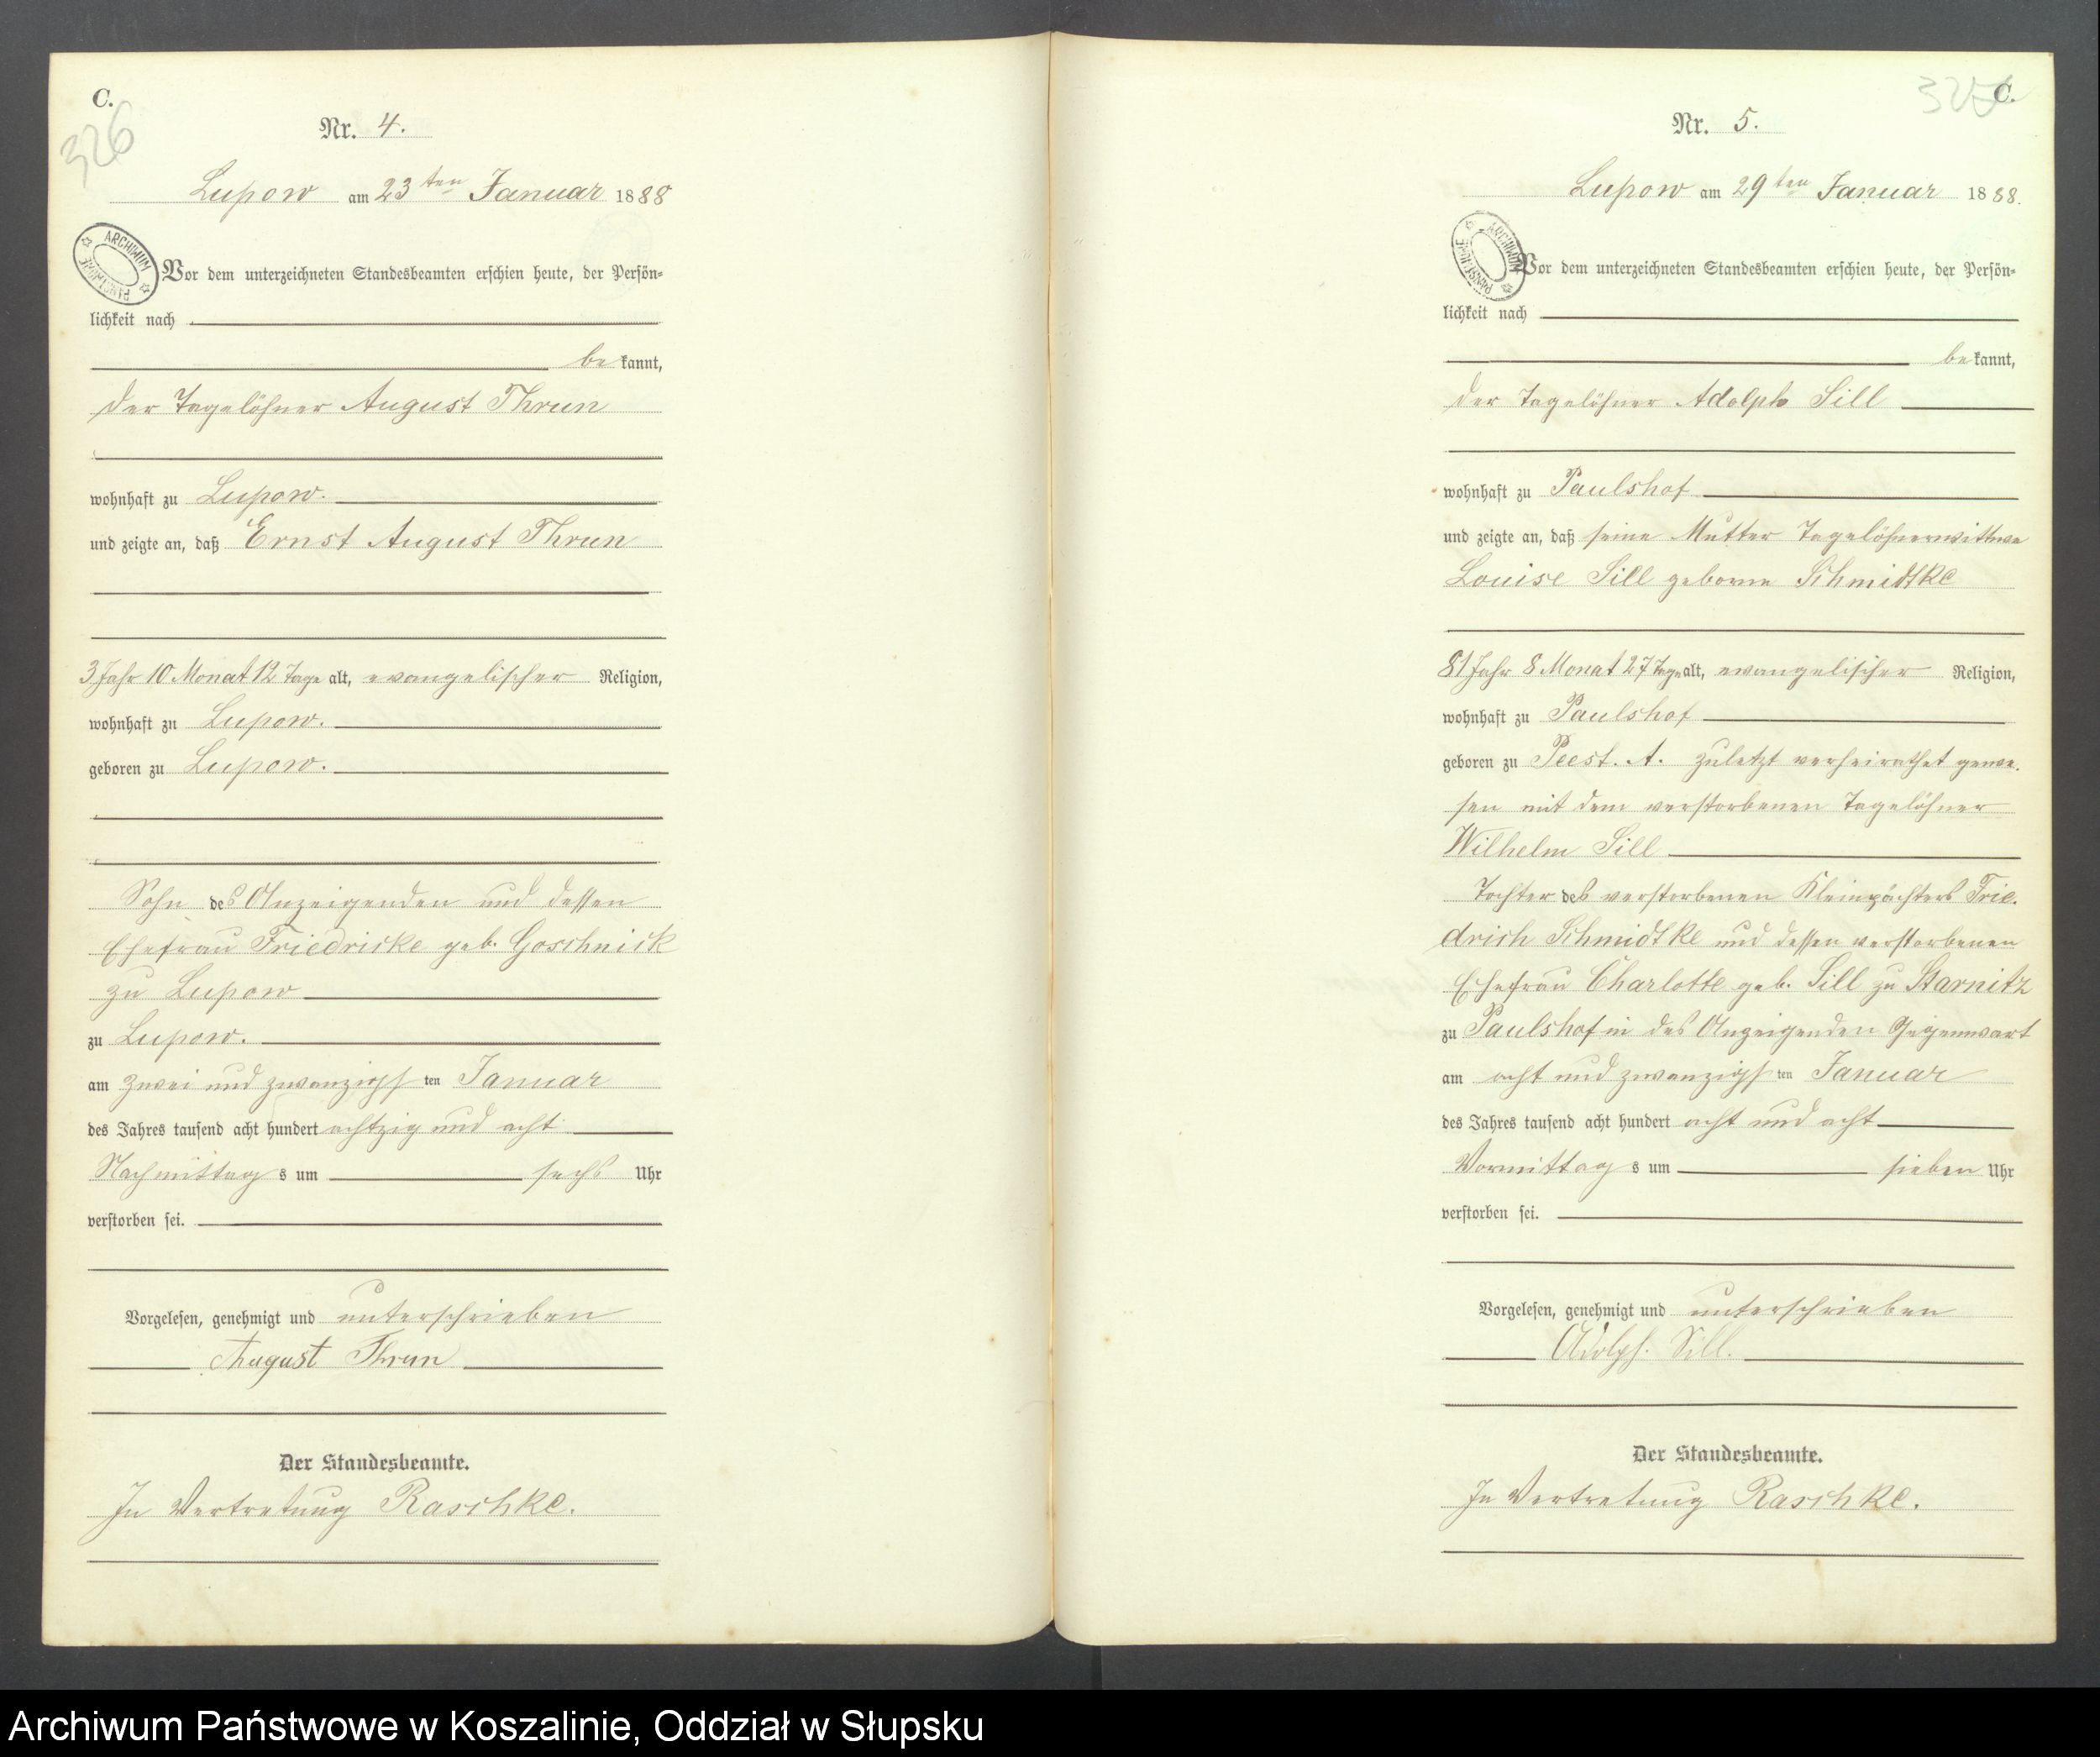 C.
326
Nr. 4.
Lupow am 23ten Januar 1888
ARCHIWUM PAŃSTWOWE
Vor dem unterzeichneten Standesbeamten erschien heute, der Persön-
lichkeit nach
bekannt,
der Tagelöhner August Thrun
wohnhaft zu Lupow.
und zeigte an, daß Ernst August Thrun
3 Jahr 10 Monat 12 Tage alt, evangelischer Religion,
wohnhaft zu Lupow.
geboren zu Lupow.
Sohn des Anzeigenden und dessen
Ehefrau Friedricke geb. Goschnick
zu Lupow
zu Lupow.
am zwei und zwanzigsten Januar
des Jahres tausend acht hundert achtzig und acht
Nachmittags um sechs Uhr
verstorben sei.
Vorgelesen, genehmigt und unterschrieben
August Thrun
Der Standesbeamte.
In Vertretung Raschke.
C.
Nr. 5.
Lupow am 29ten Januar 1888.
ARCHIWUM PAŃSTWOWE
Vor dem unterzeichneten Standesbeamten erschien heute, der Persön-
lichkeit nach
bekannt,
der Tagelöhner Adolph Sill
wohnhaft zu Paulshof
und zeigte an, daß seine Mutter Tagelöhnerwittwe
Louise Sill geborne Schmidtke
81 Jahr 8 Monat 27 Tage alt, evangelischer Religion,
wohnhaft zu Paulshof
geboren zu Peest. A. zuletzt verheirathet gewe.
sen mit dem verstorbenen Tagelöhner
Wilhelm Sill
Tochter des verstorbenen Kleinpächters Frie.
drich Schmidtke und dessen verstorbenen
Ehefrau Charlotte geb. Sill zu Starnitz
zu Paulshof in des Anzeigenden Gegenwart
am acht und zwanzigsten Januar
des Jahres tausend acht hundert acht und acht
Vormittags um sieben Uhr
verstorben sei.
Vorgelesen, genehmigt und unterschrieben
Adolph. Sill.
Der Standesbeamte.
In Vertretung Raschke.
Archiwum Państwowe w Koszalinie, Oddział w Słupsku